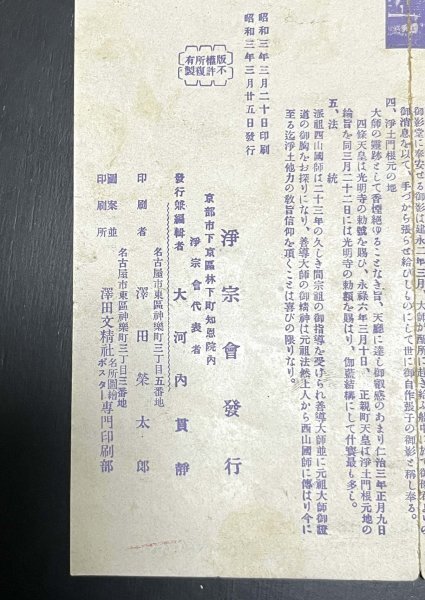 御影堂に奉安せる御影は建永二年三月、大師が配所に赴き給ふ船中に於て御形見の
御消息を以て、手づから張らせ給ひしものにして世に御自作張子の御影と稱し奉る。
四、淨土門根元の地
大師の靈跡として香煙絕ゆることなき旨、天廳に達し御叡感のあまり仁治三年正月九日
四條天皇は光明寺の勅號を賜ひ、永祿六年三月十日、正親町天皇は淨土門根元地の
綸旨を同三月二十二日には光明寺の勅額を賜はり、伽藍結構にして什寳最も多し。
五、法統
派祖西山國師は二十三年の久しき間宗祖の御指導を受けられ善導大師並に元祖大師御證
道の御胸をお探りになり、善導大師の御精神は元祖法然上人から西山國師に傳はり今に
至る迄淨土他力の敎旨信仰を頂くことは喜びの限りなり。
昭和三年三月二十日印刷
昭和三年三月廿五日發行
版權所有
不許複製
淨宗會發行
京都市下京區林下町知恩院內
淨宗會代表者
發行兼編輯者 大河內貫靜
名古屋市東區神樂町三丁目五番地
印刷者 澤田榮太郎
名古屋市東區神樂町三丁目三番地
圖案並印刷所 澤田文精社 名所圖繪ポスター專門印刷部